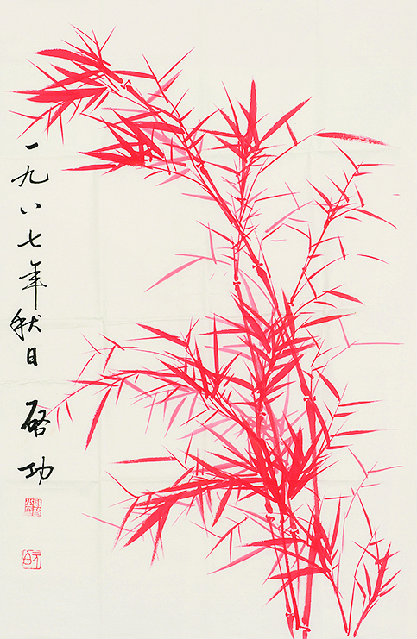 一九八七年秋日
启功